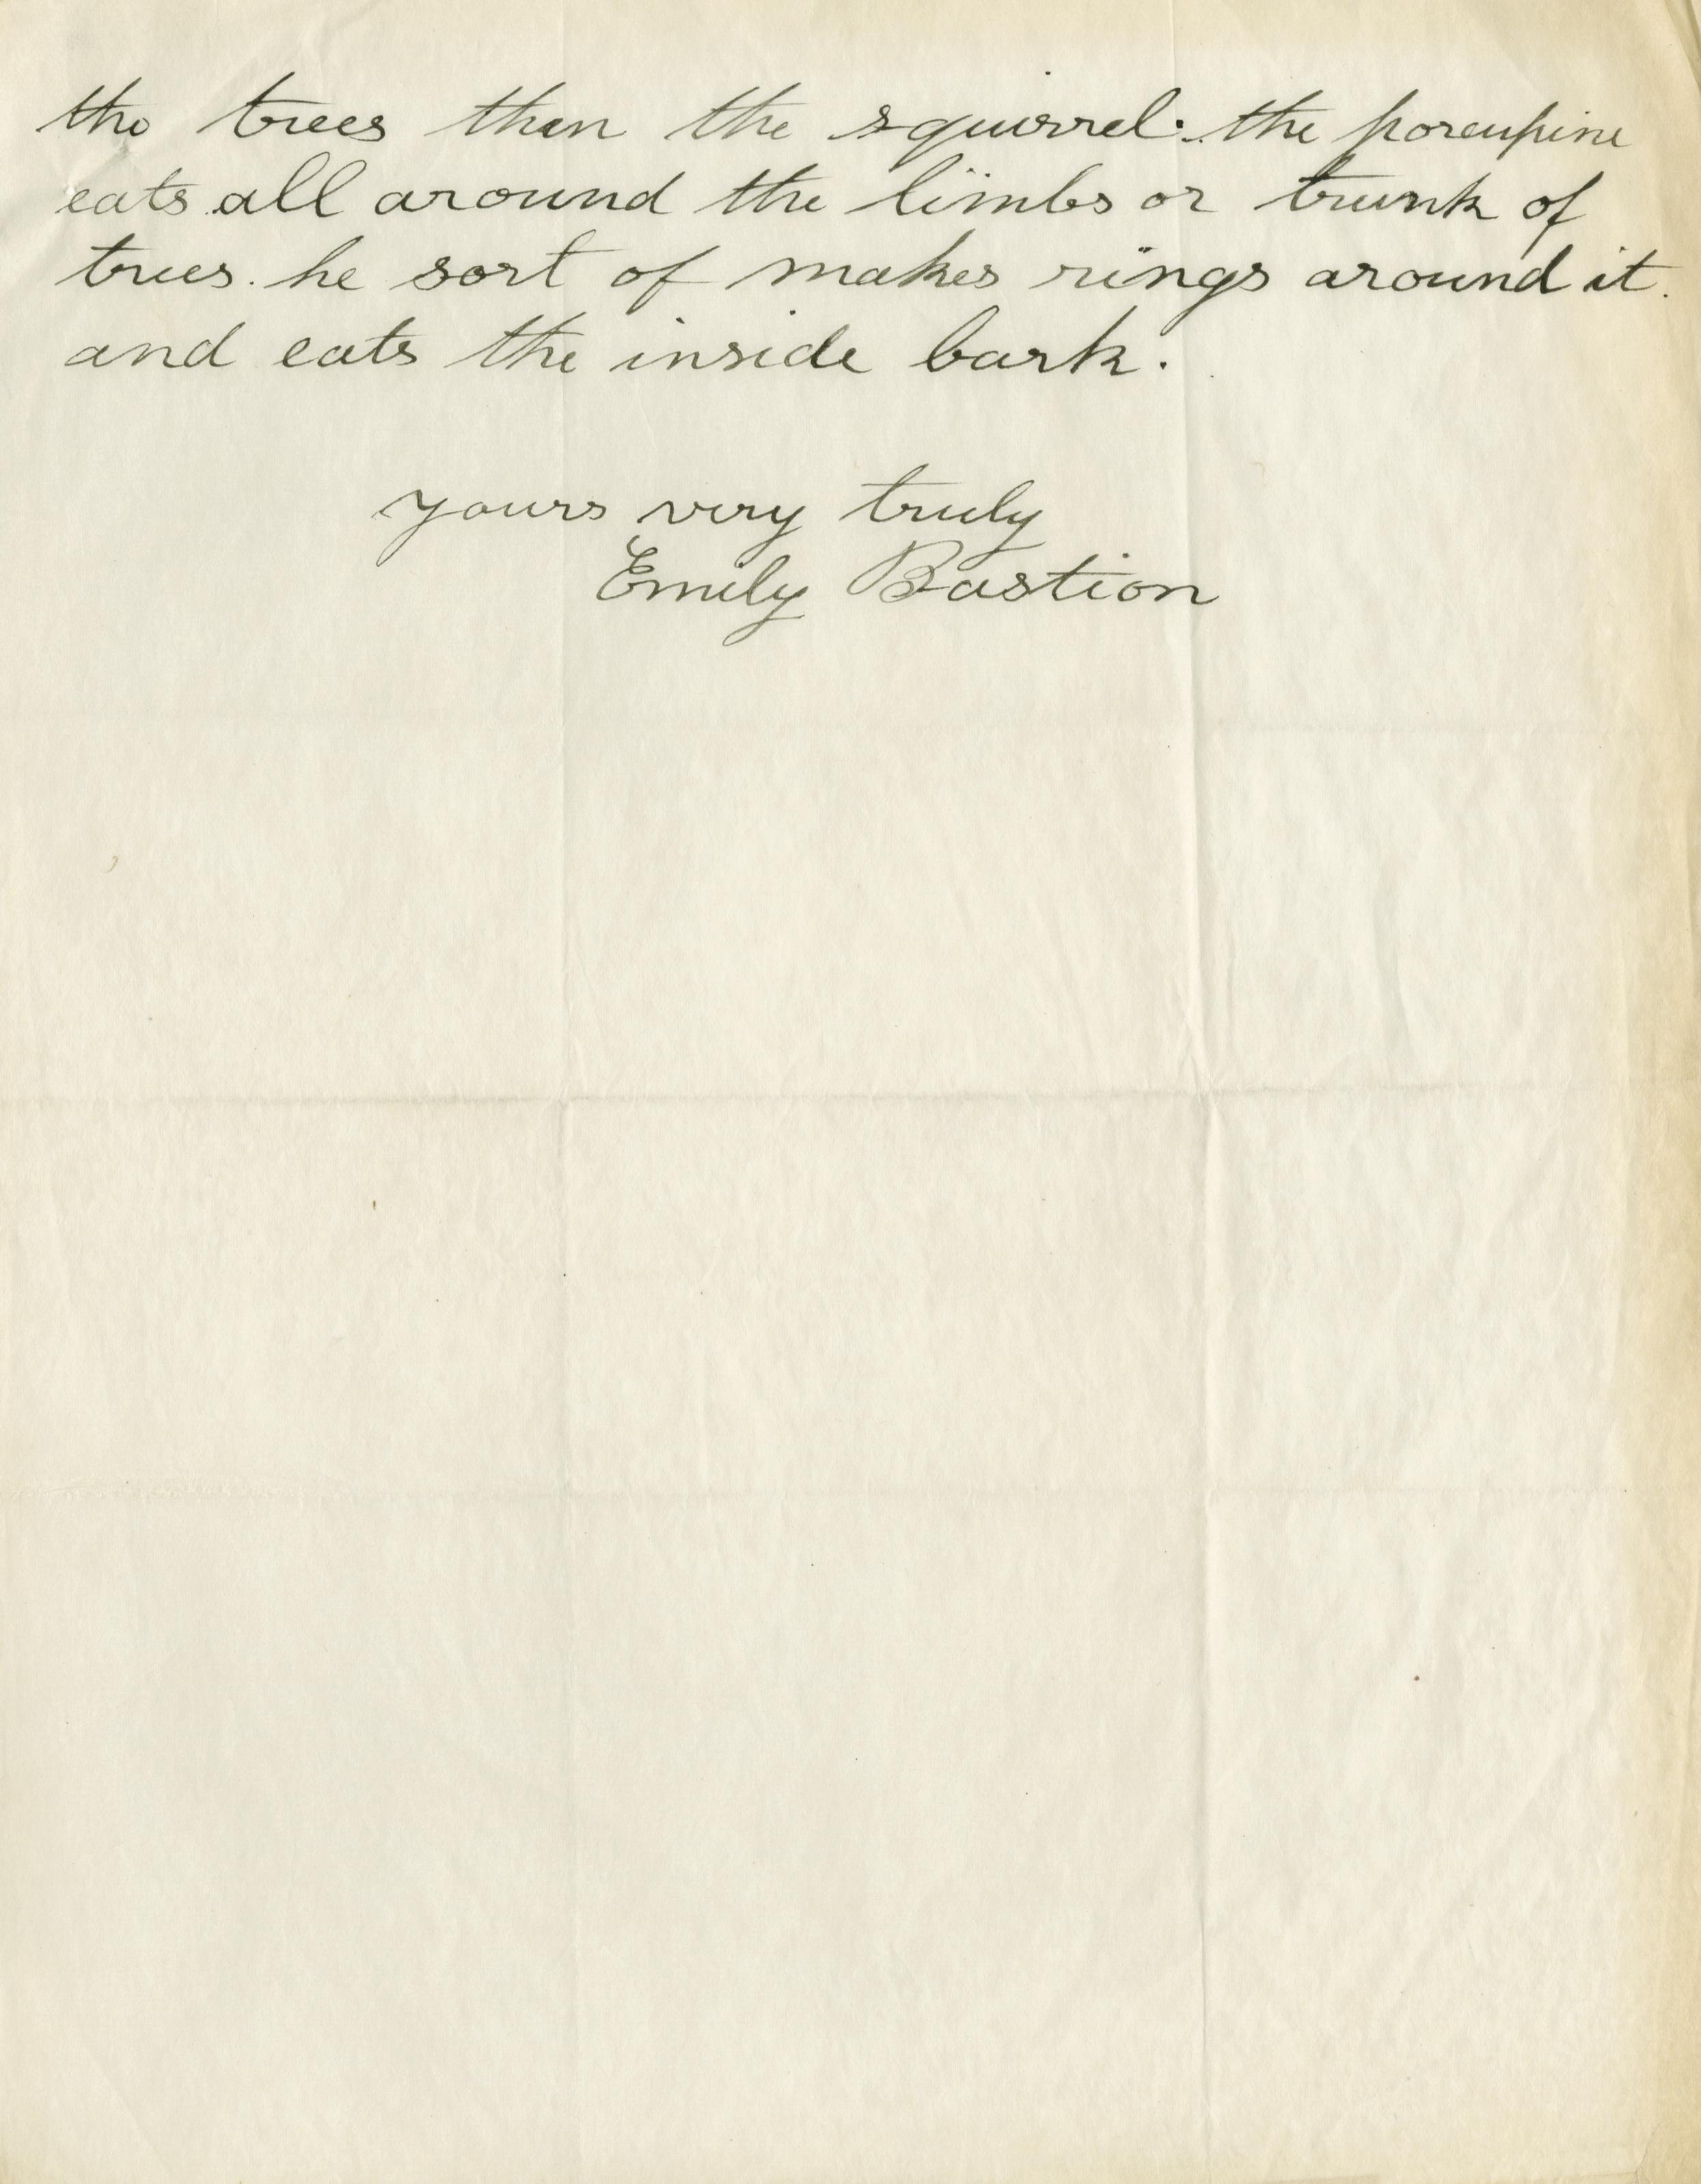 the trees than the squirrel. the porcupine
eats all around the limbs or trunk of
trees. he sort of makes rings around it.
and eats the inside bark.
yours very truly
Emily Bastion